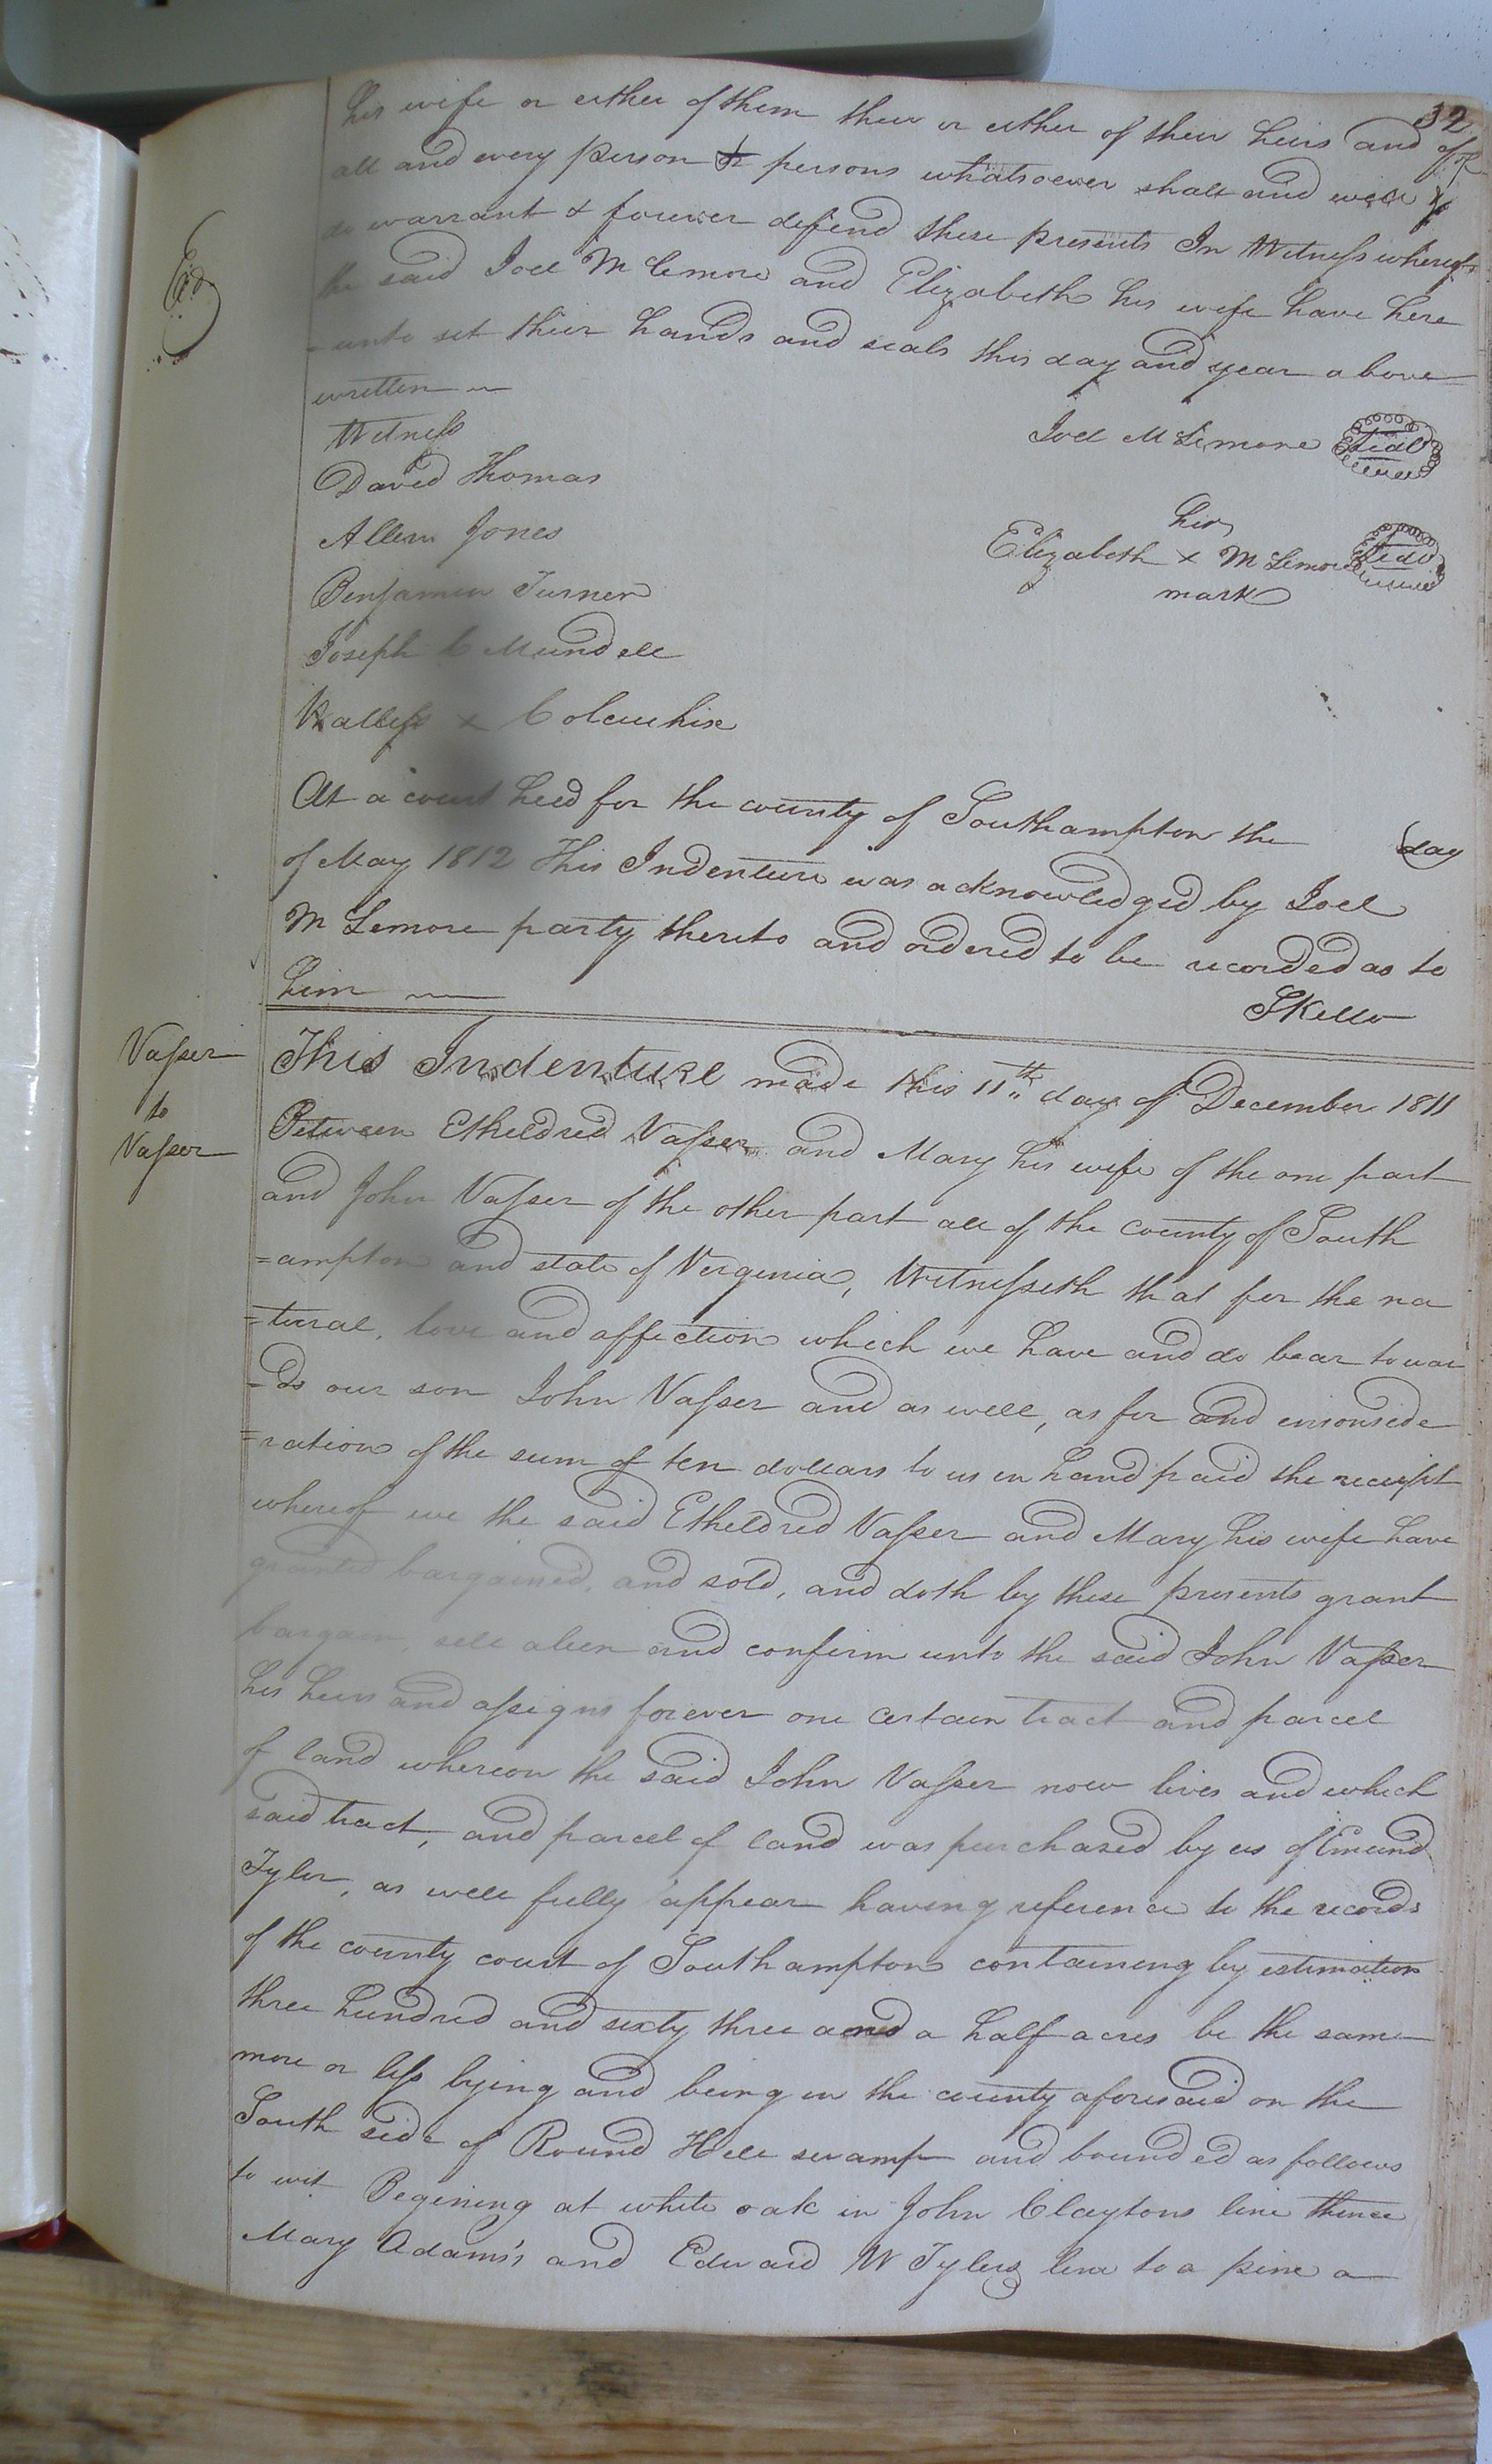 32
his wife or either of them their or either of their heirs and of
all and every person or persons whatsoever shall and will
do warrant & forever defend these presents In Witness whereof
the said Joel McLemore and Elizabeth his wife have here
-unto set their hands and seals this day and year above
written
Witness
Joel McLemore Seal
David Thomas
Allen Jones
her
Elizabeth x McLemore Seal
mark
Benjamin Turner
Joseph C Mundell
x
At a court held for the county of Southampton the day
of May 1812 This Indenture was acknowledged by Joel
McLemore party thereto and ordered to be recorded as to
him
SKello
Exd
Vasser
to
Vasser
This Indenture made this 11th day of December 1811
Between Etheldred Vasser and Mary his wife of the one part
and John Vasser of the other part all of the county of South
=ampton and state of Verginia, Witnesseth that for the na
=tural, love and affection which we have and do bear towar
-ds our son John Vasser and as well, as for and inconside
=ration of the sum of ten dollars to us in hand paid the receipt
whereof we the said Etheldred Vasser and Mary his wife have
granted bargained, and sold, and doth by these presents grant
bargain, sell alien and confirm unto the said John Vasser
his heirs and assigns forever one certain tract and parcel
of land whereon the said John Vasser now lives and which
said tract, and parcel of land was purchased by us of Emund
Tyler, as well fully appear having reference to the records
of the county court of Southampton containing by estimation
three hundred and sixty three and a half acres be the same
more or less lying and being in the county aforesaid on the
South side of Round Hill swamp and bounded as follows
to wit Begining at white oak in John Claytons line thence
Mary Adams's and Edward W Tylers line to a pine a